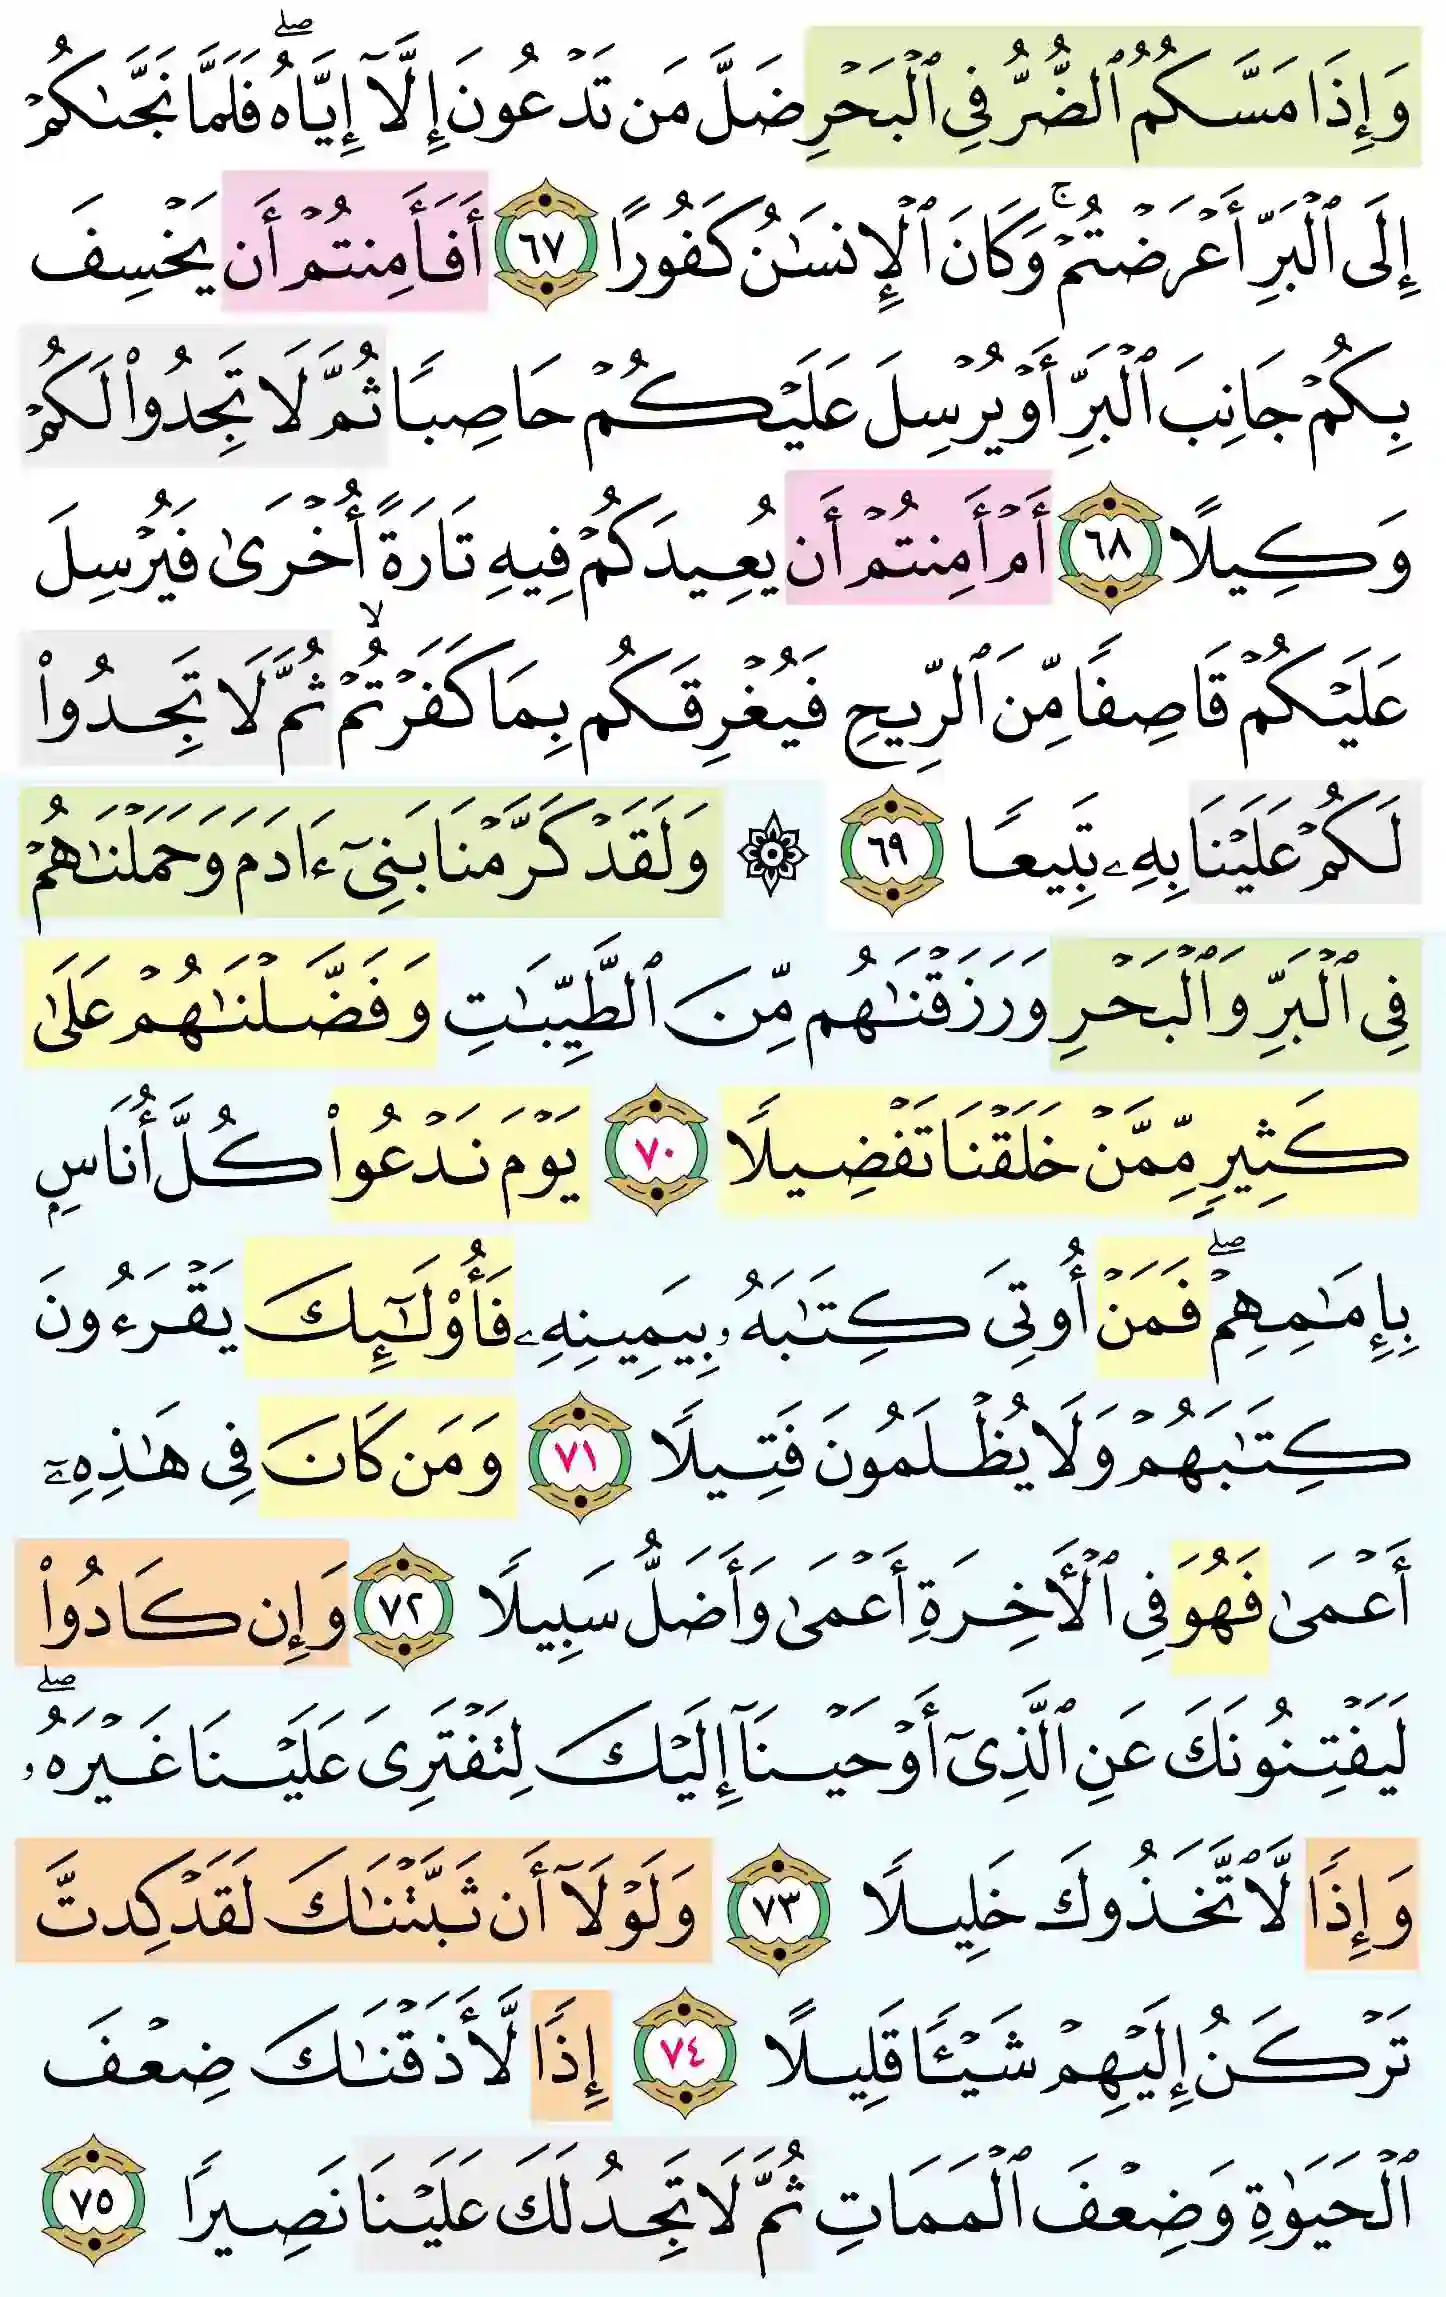 وَإِذَا مَسَّكُمُ ٱلضُّرُّ فِى ٱلْبَحْرِ ضَلَّ مَن تَدْعُونَ إِلَّآ إِيَّاهُ ۖ فَلَمَّا نَجَّىٰكُمْ
إِلَى ٱلْبَرِّ أَعْرَضْتُمْ ۚ وَكَانَ ٱلْإِنسَٰنُ كَفُورًا ٦٧ أَفَأَمِنتُمْ أَن يَخْسِفَ
بِكُمْ جَانِبَ ٱلْبَرِّ أَوْ يُرْسِلَ عَلَيْكُمْ حَاصِبًا ثُمَّ لَا تَجِدُوا۟ لَكُمْ
وَكِيلًا ٦٨ أَمْ أَمِنتُمْ أَن يُعِيدَكُمْ فِيهِ تَارَةً أُخْرَىٰ فَيُرْسِلَ
عَلَيْكُمْ قَاصِفًا مِّنَ ٱلرِّيحِ فَيُغْرِقَكُم بِمَا كَفَرْتُمْ ۙ ثُمَّ لَا تَجِدُوا۟
لَكُمْ عَلَيْنَا بِهِۦ تَبِيعًا ٦٩ ۞ وَلَقَدْ كَرَّمْنَا بَنِىٓ ءَادَمَ وَحَمَلْنَٰهُمْ
فِى ٱلْبَرِّ وَٱلْبَحْرِ وَرَزَقْنَٰهُم مِّنَ ٱلطَّيِّبَٰتِ وَفَضَّلْنَٰهُمْ عَلَىٰ
كَثِيرٍ مِّمَّنْ خَلَقْنَا تَفْضِيلًا ٧٠ يَوْمَ نَدْعُوا۟ كُلَّ أُنَاسٍۭ
بِإِمَٰمِهِمْ ۖ فَمَنْ أُوتِىَ كِتَٰبَهُۥ بِيَمِينِهِۦ فَأُو۟لَٰٓئِكَ يَقْرَءُونَ
كِتَٰبَهُمْ وَلَا يُظْلَمُونَ فَتِيلًا ٧١ وَمَن كَانَ فِى هَٰذِهِۦٓ
أَعْمَىٰ فَهُوَ فِى ٱلْأَخِرَةِ أَعْمَىٰ وَأَضَلُّ سَبِيلًا ٧٢ وَإِن كَادُوا۟
لَيَفْتِنُونَكَ عَنِ ٱلَّذِىٓ أَوْحَيْنَآ إِلَيْكَ لِتَفْتَرِىَ عَلَيْنَا غَيْرَهُۥ ۖ
وَإِذًا لَّٱتَّخَذُوكَ خَلِيلًا ٧٣ وَلَوْلَآ أَن ثَبَّتْنَٰكَ لَقَدْ كِدتَّ
تَرْكَنُ إِلَيْهِمْ شَيْـًٔا قَلِيلًا ٧٤ إِذًا لَّأَذَقْنَٰكَ ضِعْفَ
ٱلْحَيَوٰةِ وَضِعْفَ ٱلْمَمَاتِ ثُمَّ لَا تَجِدُ لَكَ عَلَيْنَا نَصِيرًا ٧٥